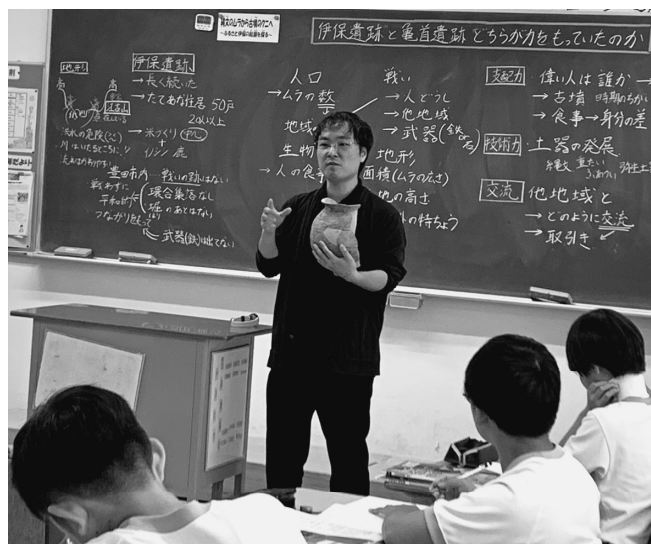 縄文のムラから古墳のクニへ
～ふるさと伊保の起源を探る～
伊保遺跡と亀首遺跡どちらが力をもっていたのか
地形
高
高
伊保遺跡
→長く続いた
→たてあな住居 50戸
20以上
→米づくり
+
イノシシ 鹿
豊田市内 戦いの跡はない
戦わずに
環合集落なし
堀のあとはない
武器(鉄)は出てない
人口
→ムラの数
地域
生物
→人の食
戦い
→人どうし
→他地域
→武器(鉄
地形
面積(ムラの広さ)
地の高さ
の特ちょう
支配力
偉い人は誰か→
→古墳 時期のちがい
→食事→身分の差
技術力
土器の発展
縄文
弥生土
交流
他地域と
→どのように交流
→取引き